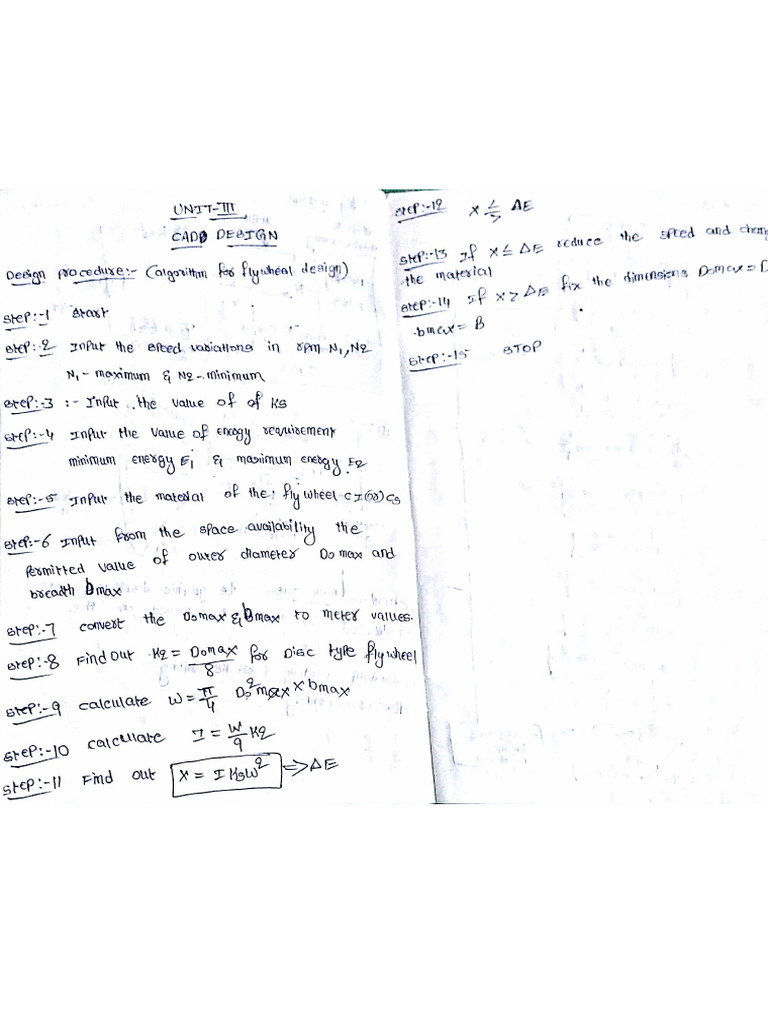 UNIT-III
CADD DESIGN
Design procedure:- (algorithm for flywheal design)
Step:-1 Start
Step:-2 Input the speed variations in rpm N1, N2
N1 - maximum & N2 - minimum
Step:-3 :- Input the value of of Ks
Step:-4 Input the value of energy requirement
minimum energy E1 & maximum energy E2
Step:-5 Input the material of the fly wheel CI (or) Cs
Step:-6 Input from the space availability the
Permitted value of outer diameter Do max and
breadth bmax
Step:-7 convert the Domax & bmax to meter values.
Step:-8 Find out K2 = Domax/8 for Disc type flywheel
Step:-9 calculate W = π/4 Do²max × bmax
Step:-10 calculate I = W/9 K2
Step:-11 Find out X = I Ksw² => ΔE
Step:-12 X ≤ > ΔE
Step:-13 If X ≤ ΔE reduce the speed and
the material
Step:-14 If X > ΔE fix the dimensions Domax =
bmax = B
Step:-15 STOP